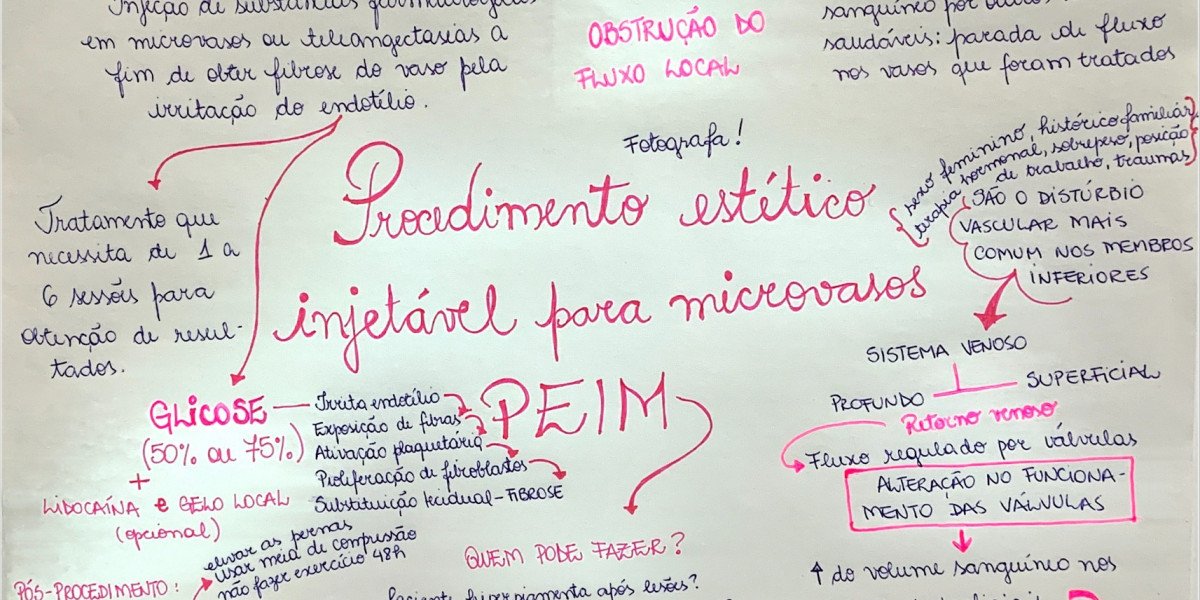 Injeção de substâncias farmacológicas
em microvasos ou teleangectasias a
fim de obter fibrose do vaso pela
irritação do endotélio.
OBSTRUÇÃO DO
FLUXO LOCAL
sanguíneo por
saudáveis: parada de fluxo
nos vasos que foram tratados
Fotografa!
Procedimento estético
injetável para microvasos
PEIM
Tratamento que
necessita de 1 a
6 sessões para
obtenção de resul-
tados.
sexo feminino, histórico familiar,
terapia hormonal, sobrepeso, posição
de trabalho, traumas
SÃO O DISTÚRBIO
VASCULAR MAIS
COMUM NOS MEMBROS
INFERIORES
SISTEMA VENOSO
PROFUNDO
SUPERFICIAL
Retorno venoso
Fluxo regulado por válvulas
ALTERAÇÃO NO FUNCIONA-
MENTO DAS VÁLVULAS
↑ do volume sanguíneo nos
GLICOSE
(50% ou 75%)
+
LIDOCAÍNA e GELO LOCAL
(opcional)
Irrita endotélio
Exposição de fibras
Ativação plaquetária
Proliferação de fibroblastos
Substituição tecidual - FIBROSE
PÓS-PROCEDIMENTO:
elevar as pernas
usar meia de compressão
não fazer exercício 48h
QUEM PODE FAZER?
Paciente hiperpigmenta após lesões?